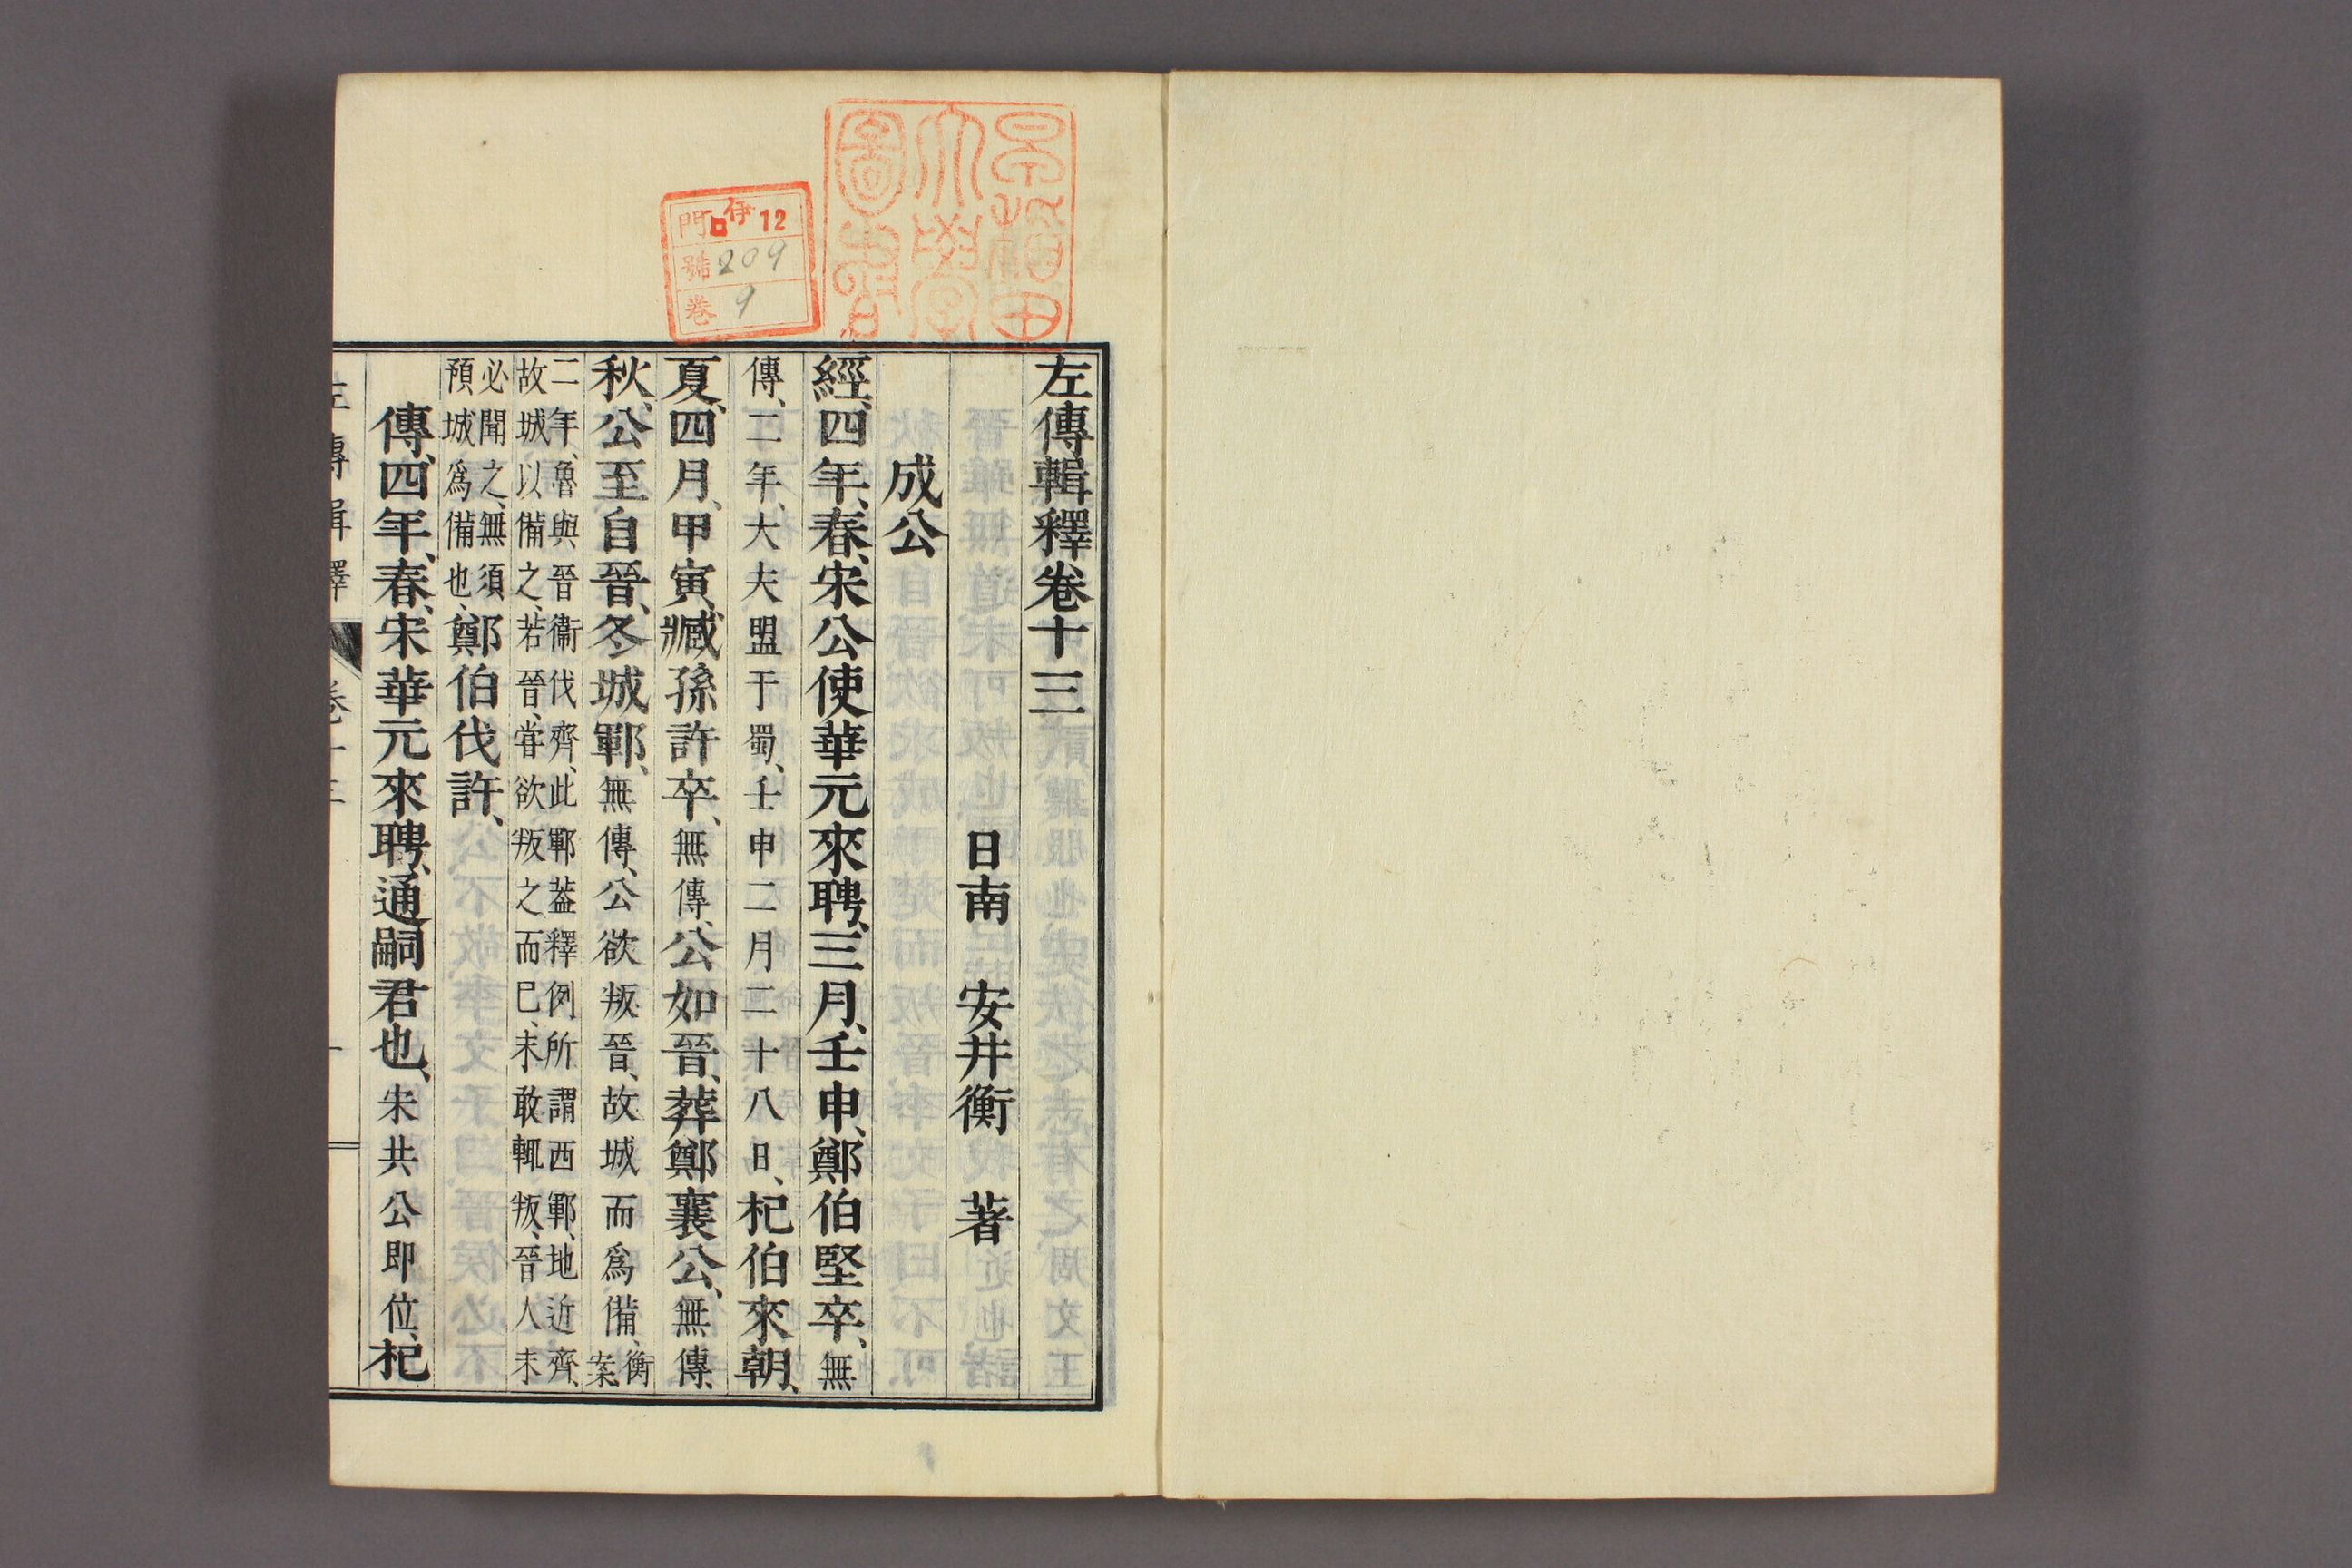 左傳輯釋卷十三
日南 安井衡 著
成公
經、四年、春、宋公使華元來聘、三月、壬申、鄭伯堅卒、無
傳、二年、大夫盟于蜀、壬申二月二十八日、杞伯來朝、
夏、四月、甲寅、臧孫許卒、無傳、公如晉、葬鄭襄公、無傳、
秋、公至自晉、冬城鄆、無傳、公欲叛晉、故城而爲備、衡案、
二年、魯與晉衞伐齊、此鄆葢釋例所謂西鄆、地近齊、
故城以備之、若晉、嘗欲叛之而已、未敢輒叛、晉人未
必聞之、無須
預城爲備也、鄭伯伐許、
傳、四年、春、宋華元來聘、通嗣君也、宋共公即位、杞
左傳輯釋 卷十三 一
早稻田
大學
圖書
門 伊12
號 209
卷 9